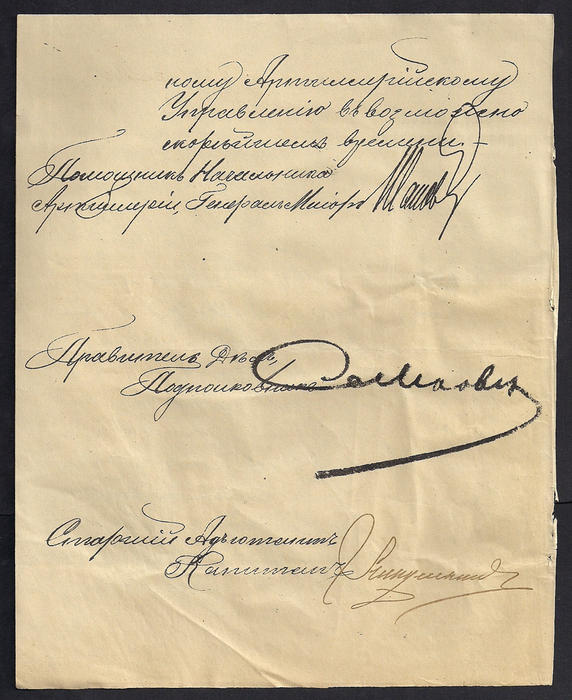 ному Артиллерійскому
Управленію въ возможно
скорѣйшемъ времени.
Помощникъ Начальника
Артиллеріи, Генералъ-Маіоръ
Правитель Дѣлъ,
Подполковникъ
Старшій Адъютантъ
Капитанъ